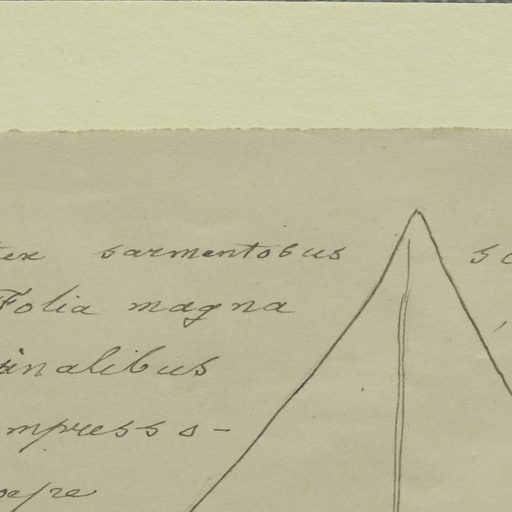 tex sarmentosus sc
Folia magna
inalibus
mpresso-
oepe